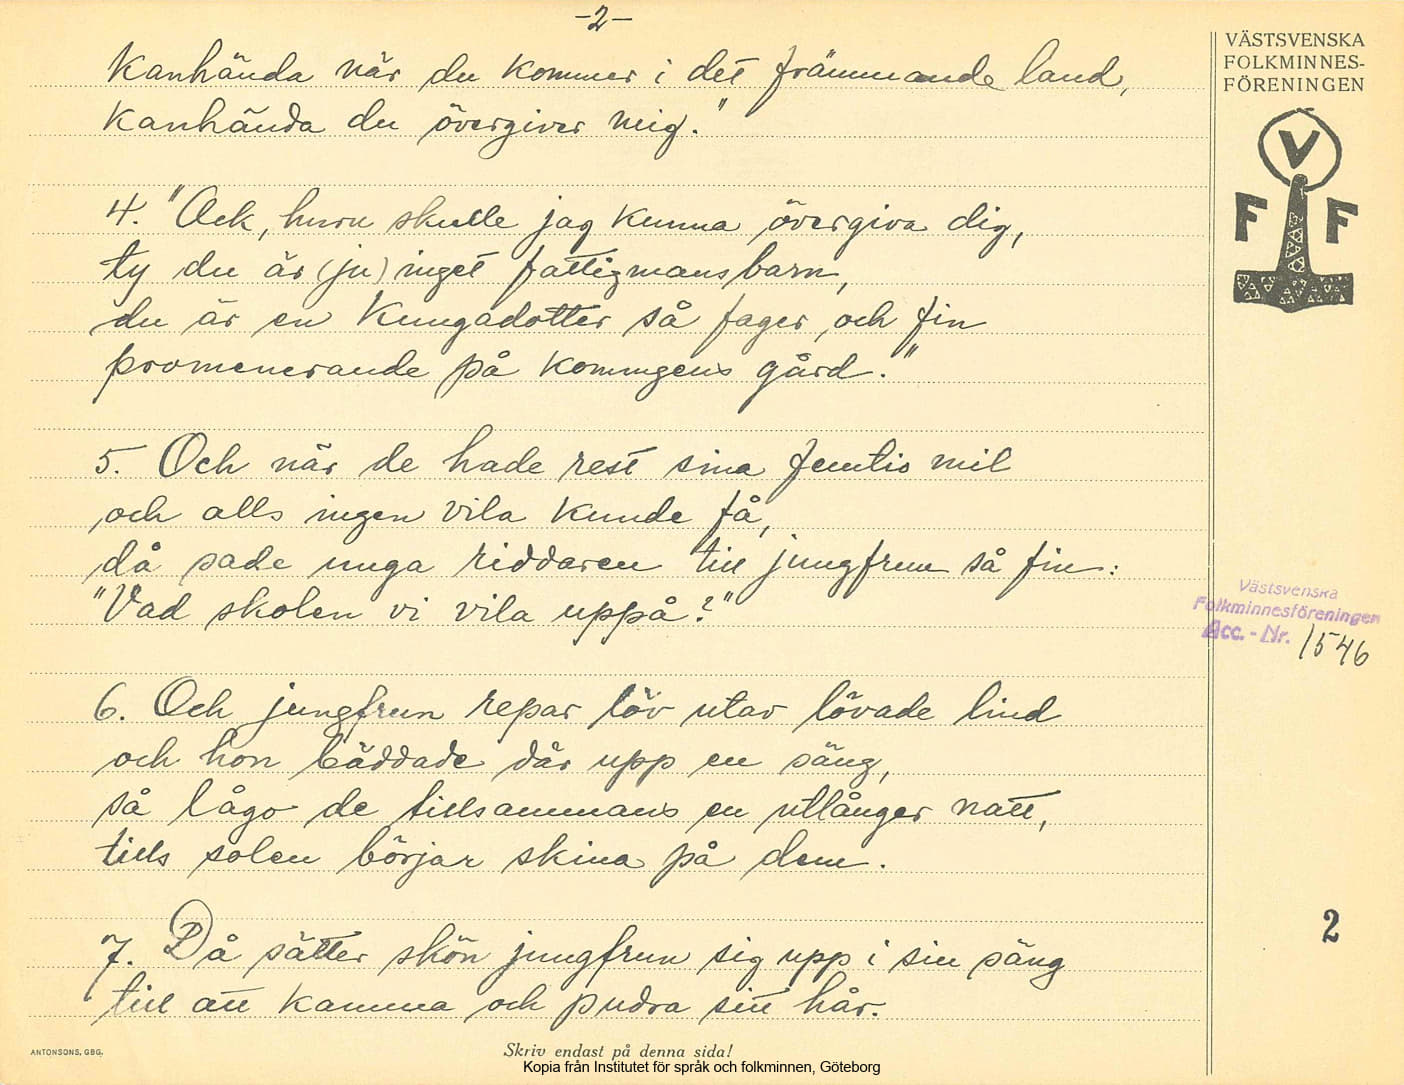 -2-
Kanhända när du kommer i det främmande land,
Kanhända du övergiver mig."
4. "Ack, huru skulle jag kunna övergiva dig,
ty du är (ju) inget fattigmansbarn,
du är en Kungadotter så fager och fin
promenerande på konungens gård."
5. Och när de hade rest sina femtio mil
och alls ingen vila kunde få,
då sade unga riddaren till jungfrun så fin:
"Vad skolen vi vila uppå?"
6. Och jungfrun repar löv utav lövade lind
och hon bäddade där upp en säng,
så lågo de tillsammans en utlånger natt,
tills solen börjar skina på dem.
7. Då sätter skön jungfrun sig upp i sin säng
till att kamma och pudra sitt hår.
VÄSTSVENSKA
FOLKMINNES-
FÖRENINGEN
V
F F
Västsvenska
Folkminnesföreningen
Acc.-Nr. 1546
2
ANTONSONS, GBG.
Skriv endast på denna sida!
Kopia från Institutet för språk och folkminnen, Göteborg